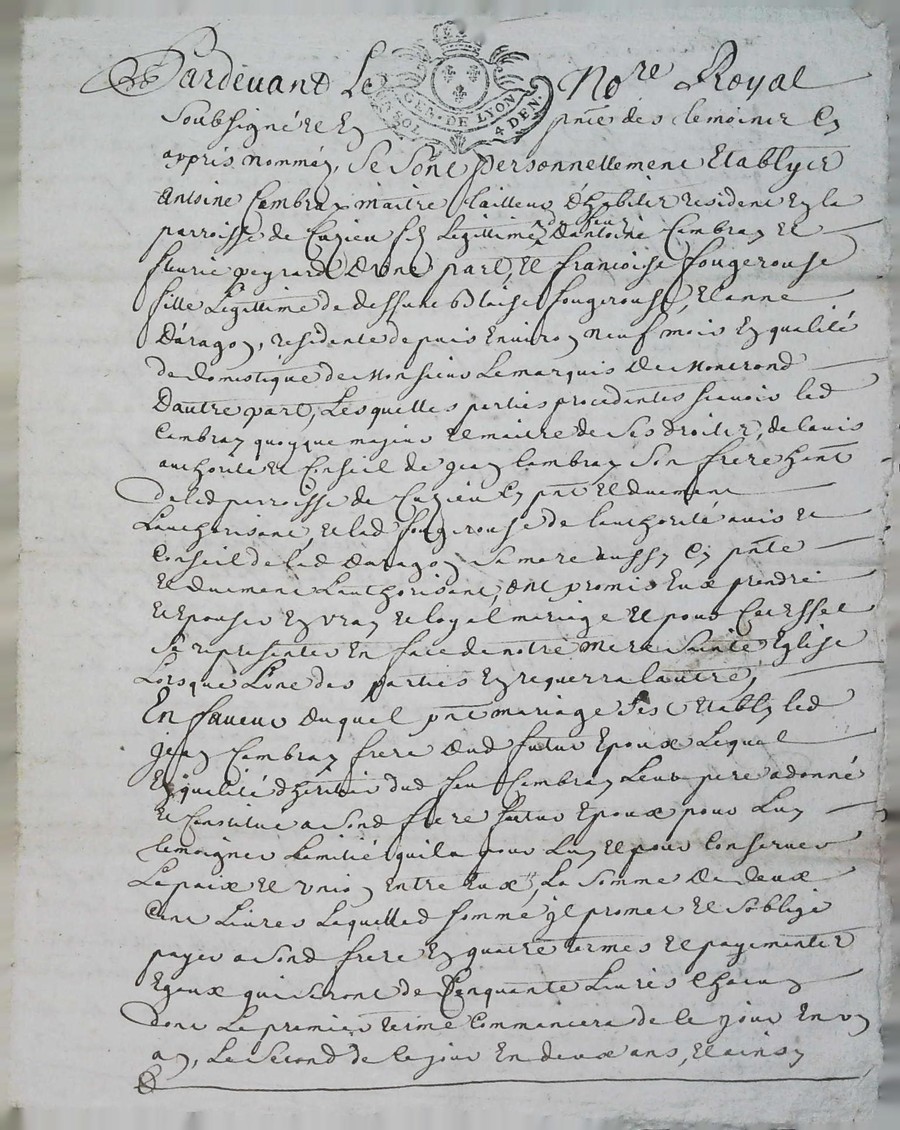 Pardevant Le No.re Royal
GEN. DE LYON
SOL 4 DEN.
Soubsigné et En pnce des temoins Cy
appris nommés, Se Sont personnellement Etablyes
Antoine Cambray maitre tailleur d'habits resident En la
parroisse de Cuzieu fils Legittime de feux d'antoine Cambray et
fleurie peyrard D'une part, Et francoise fougerouse
fille Legittime de deffunt Blaise fougerouse, Et anne
Daragon, residente depuis Environ neuf mois En qualité
de domestique de Monsieur Le marquis De Montrond
D'autre part, Lesquelles parties procedantes scavoir led
Cambray quoyque majeur Et maitre de Ses Droits, de l'avis
authorité Et Conseil de jean Cambray Son frere habt
De lad parroisse de Cuzieu Cy pnt Et duement
L'authorisant, Et lad fougerouse de l'authorité avis Et
Conseil de lad Daragon Sa mere aussy Cy pnte
Et duement L'authorisant, ont promis Eux prendre
Et Epouser En vray Et loyal mariage Et pour Cet effet
Se representer En face de notre Mere Sainte Eglise
Lorsque L'une des parties En requerra l'autre,
En faveur Duquel pnt mariage S'est Etably led
jean Cambray frere Dud futur Epoux Lequel
En qualité d'heritier dud feu Cambray Leur pere a donné
Et Constitué a Sond frere futur Epoux pour Luy
temoigner L'amitié qu'il a pour Luy Et pour Conserver
La paix Et Union Entre Eux, La Somme De deux
Cent Livres Laquelle d somme jl promet Et S'oblige
payer a Sond frere En quatre termes Et payements
Egaux qui Seront de Cinquante Livres Chacun
dont Le premier terme Commancera de Ce jour En un
an, Le Second de Ce jour En deux ans, Et ainsy